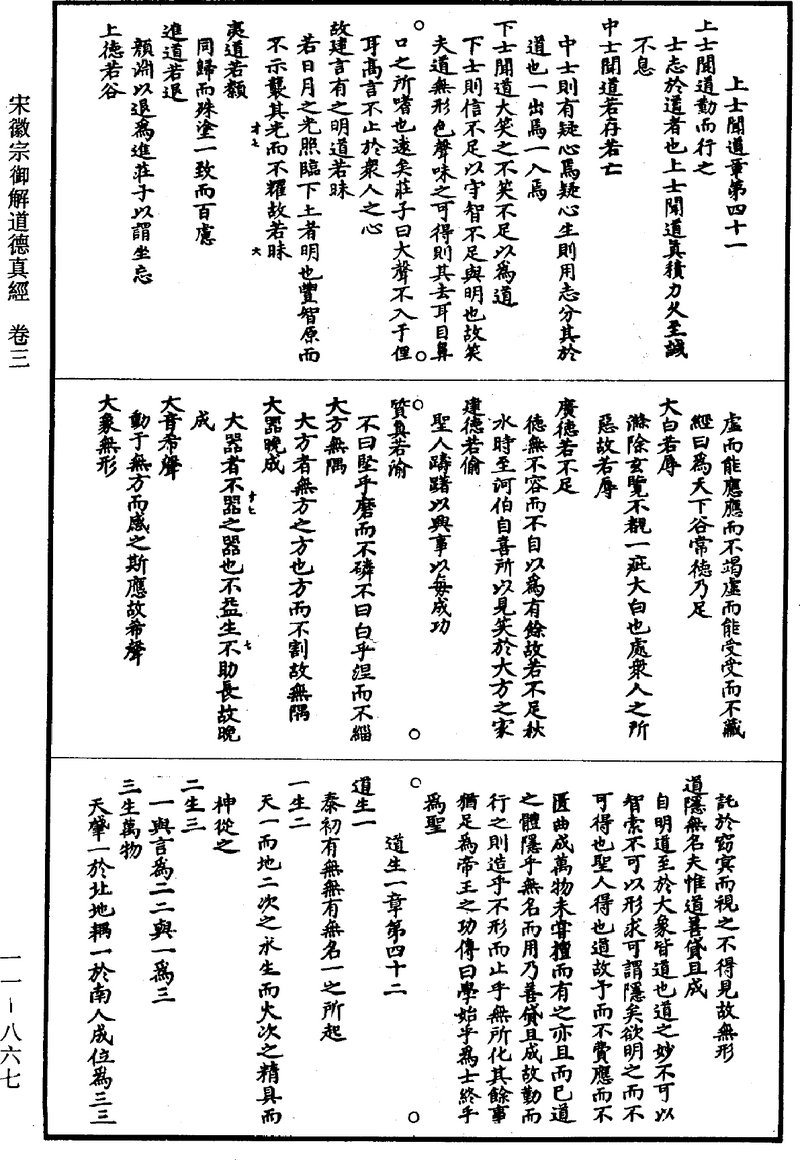 宋徽宗御解道德真經　卷三
一一—八六七
上士聞道章第四十一
上士聞道勤而行之
士志於道者也上士聞道真積力久至誠
不息
中士聞道若存若亡
中士則有疑心焉疑心生則用志分其於
道也一出焉一入焉
下士聞道大笑之不笑不足以為道
下士則信不足以守智不足與明也故笑
夫道無形色聲味之可得則其去耳目鼻
口之所嗜也遠矣莊子曰大聲不入于俚
耳高言不止於衆人之心
故建言有之明道若昧
若日月之光照臨下土者明也豐智原而
不示襲其光而不耀故若昧
夷道若纇
才七　六
同歸而殊塗一致而百慮
進道若退
顏淵以退為進莊子以謂坐忘
上德若谷
虛而能應應而不竭虛而能受受而不藏
經曰為天下谷常德乃足
大白若辱
滌除玄覽不覩一疵大白也處衆人之所
惡故若辱
廣德若不足
德無不容而不自以為有餘故若不足秋
水時至河伯自喜所以見笑於大方之家
建德若偷
聖人躊躇以興事以每成功
質真若渝
不曰堅乎磨而不磷不曰白乎涅而不緇
大方無隅
大方者無方之方也方而不割故無隅
大器晚成
才七　七
大器者不器之器也不益生不助長故晚
成
大音希聲
動于無方而感之斯應故希聲
大象無形
託於窈冥而視之不得見故無形
道隱無名夫惟道善貸且成
自明道至於大象皆道也道之妙不可以
智索不可以形求可謂隱矣欲明之而不
可得也聖人得也道故予而不費應而不
匱曲成萬物未嘗擅而有之亦且而已道
之體隱乎無名而用乃善貸且成故勤而
行之則造乎不形而止乎無所化其餘事
猶足為帝王之功傳曰學始乎為士終乎
為聖
道生一章第四十二
道生一
泰初有無無有無名一之所起
一生二
天一而地二次之水生而火次之精具而
神從之
二生三
一與言為二二與一為三
三生萬物
天肇一於北地耦一於南人成位為三三